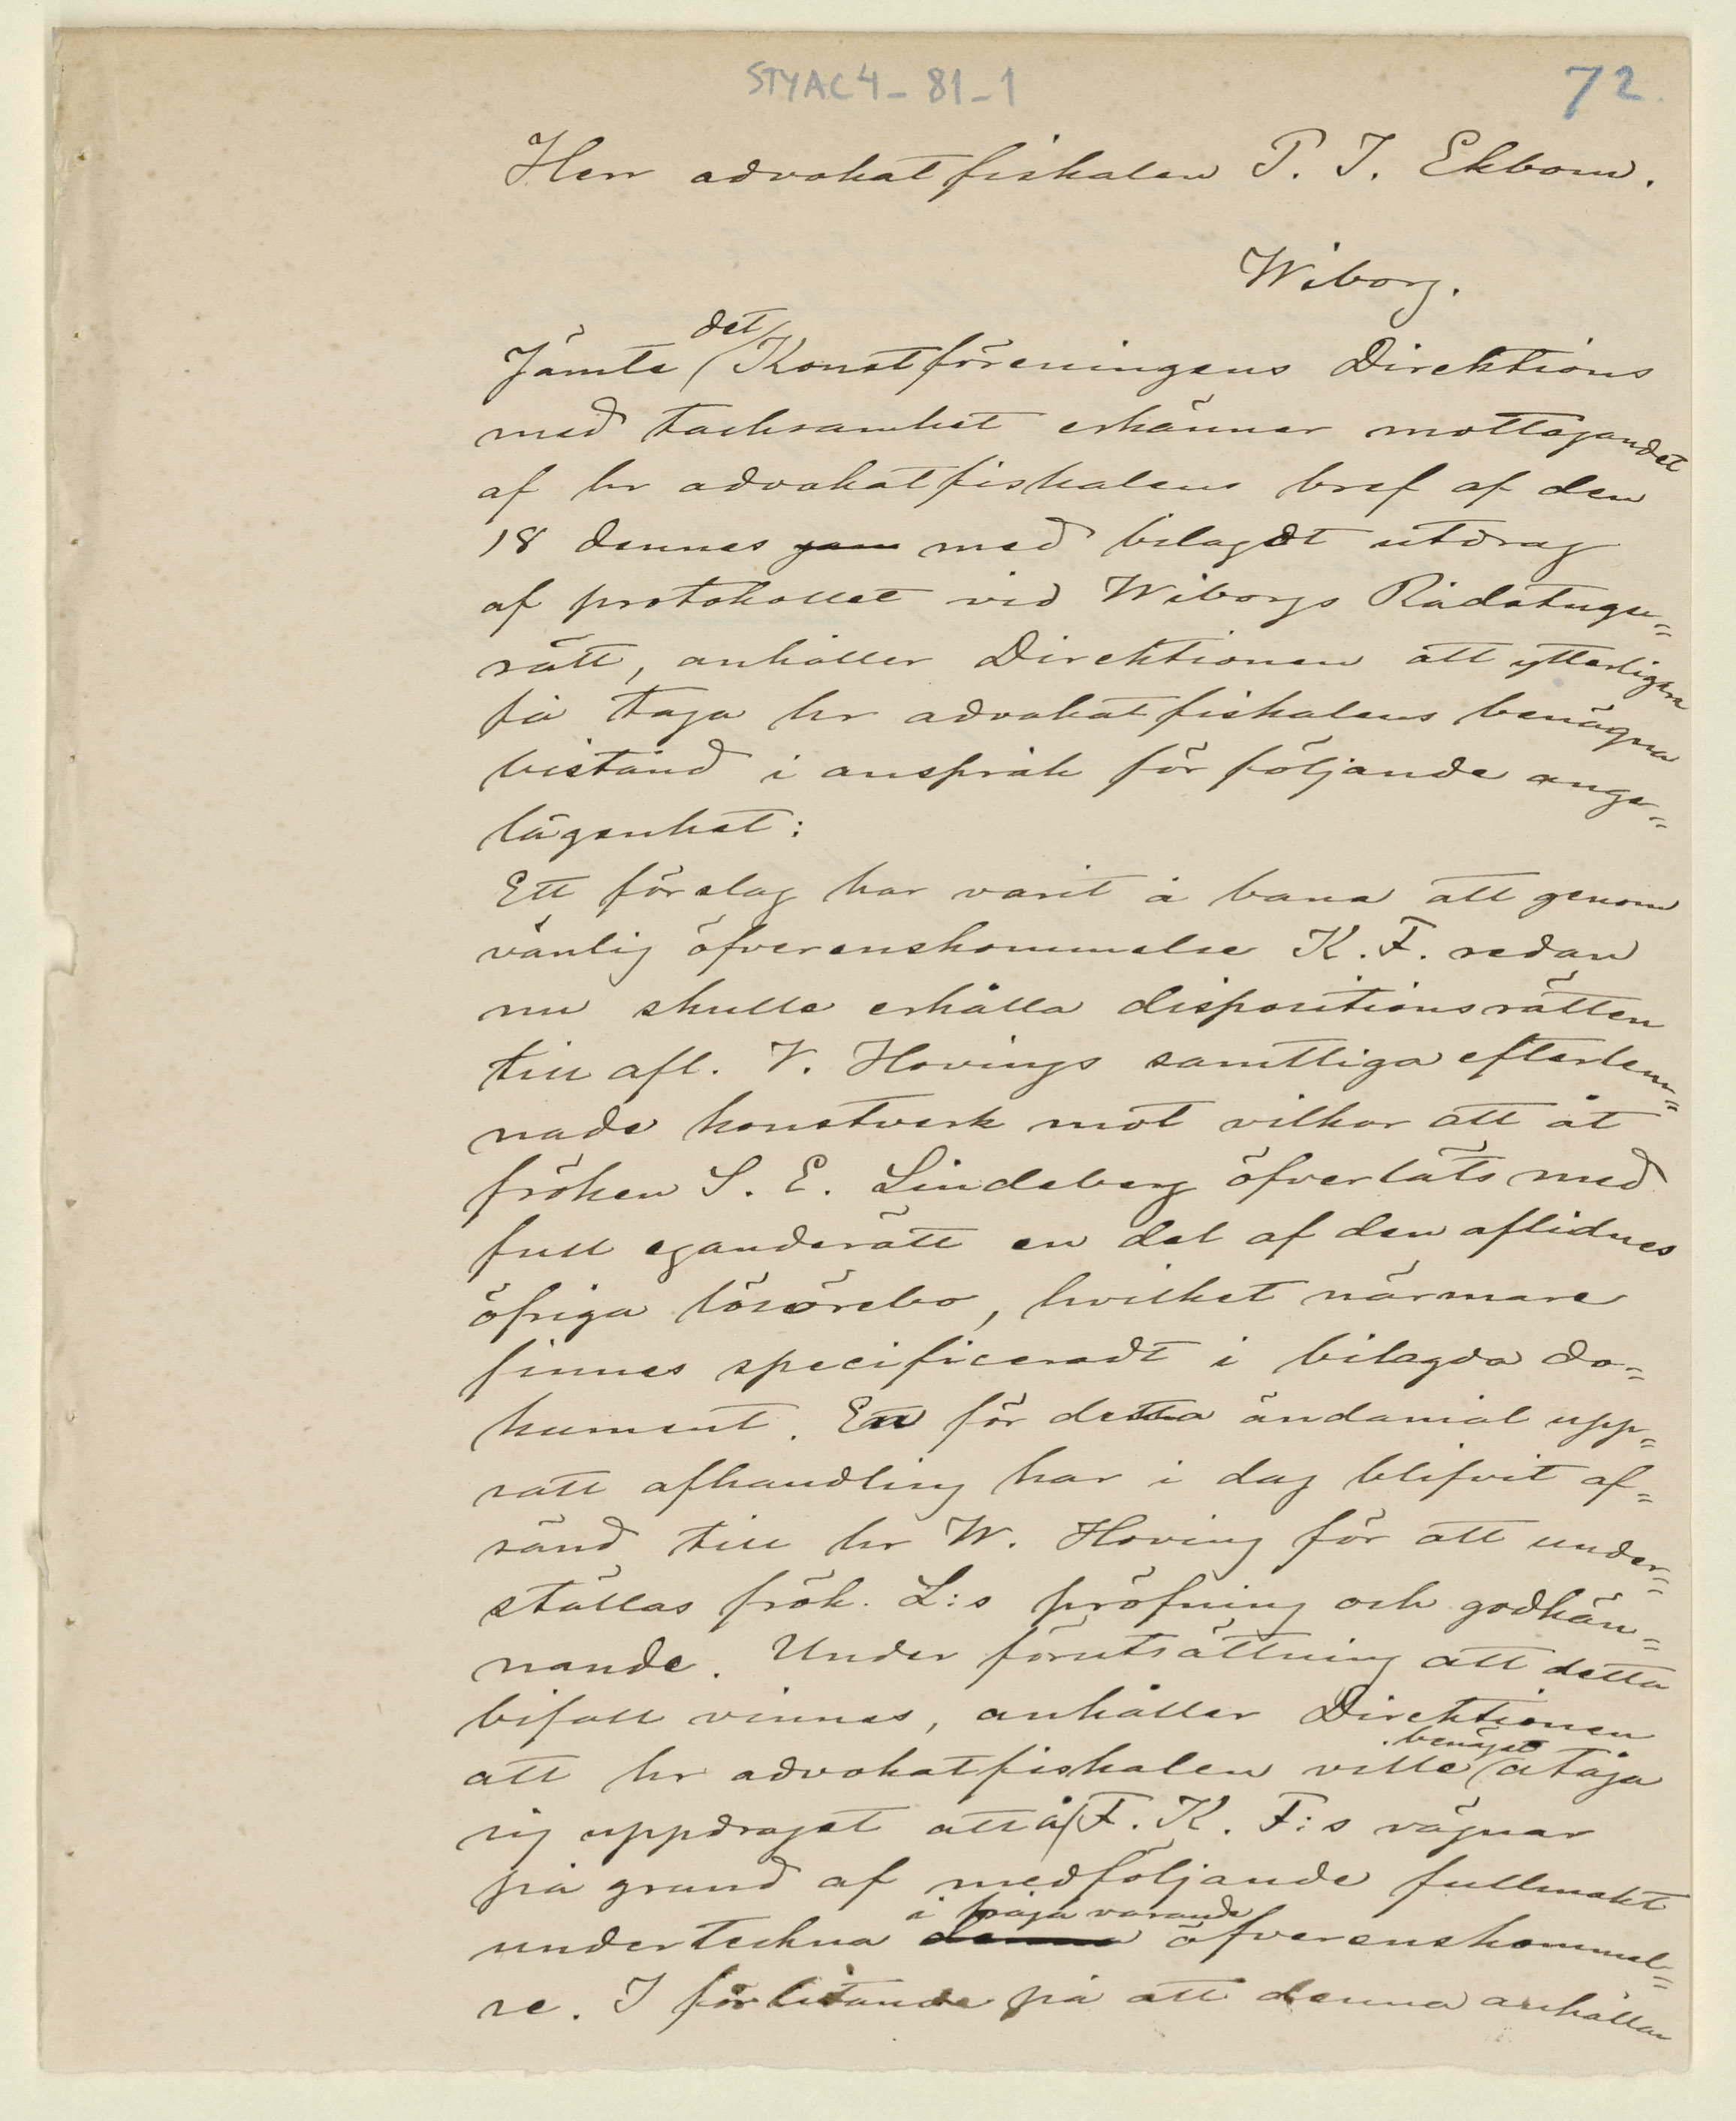 STYAC4-81-1
72.
Herr advokatfiskalen P. J. Ekbom.
Wiborg.
det
Jämte Konstföreningens Direktions
med tacksamhet erkänner mottagandet
af hr advokatfiskalens bref af den
18 dennes med bilagdt utdrag
af protokollet vid Wiborgs Rådstugu=
rätt, anhåller Direktionen att ytterligare
få taga hr advokatfiskalens benägna
bistånd i anspråk för följande ange=
lägenhet:
Ett förslag har varit å bana att genom
vänlig öfverenskommelse K. F. redan
nu skulle erhålla dispositionsrätten
till afl. V. Hovings samtliga efterlem=
nade konstverk mot vilkor att åt
fröken S. E. Lindeberg öfverlåts med
full eganderätt en del af den aflidnes
öfriga lösörebo, hvilket närmare
finnes specificeradt i bilagda do=
kument. En för detta ändamål upp=
satt afhandling har i dag blifvit af=
sänd till hr W. Hoving för att under=
ställas frök. L:s pröfning och godkän=
nande. Under förutsättning att detta
bifall vinnes, anhåller Direktionen
benäget
att hr advokatfiskalen ville åtaga
sig uppdraget att å F. K. F:s vägnar
på grund af medföljande fullmakt
i fråga varande
underteckna denna öfverenskommel=
se. I förlitande på att denna anhållan